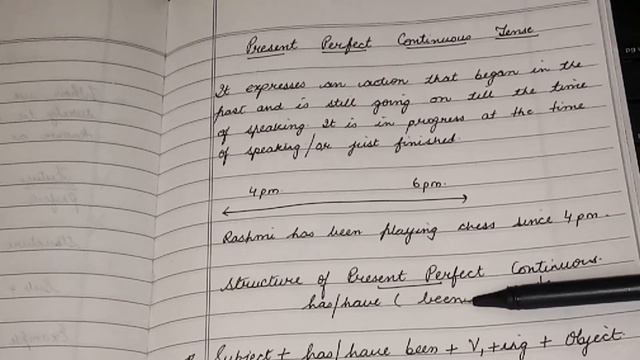 Present Perfect Continuous Tense
It expresses an action that began in the
past and is still going on till the time
of speaking It is in progress at the time
of speaking/or just finished.
4 pm. 6 pm.
Rashmi has been playing chess since 4 pm.
Structure of Present Perfect Continuous.
has/have ( been
Subject + has/have been + V₁+ing + Object.